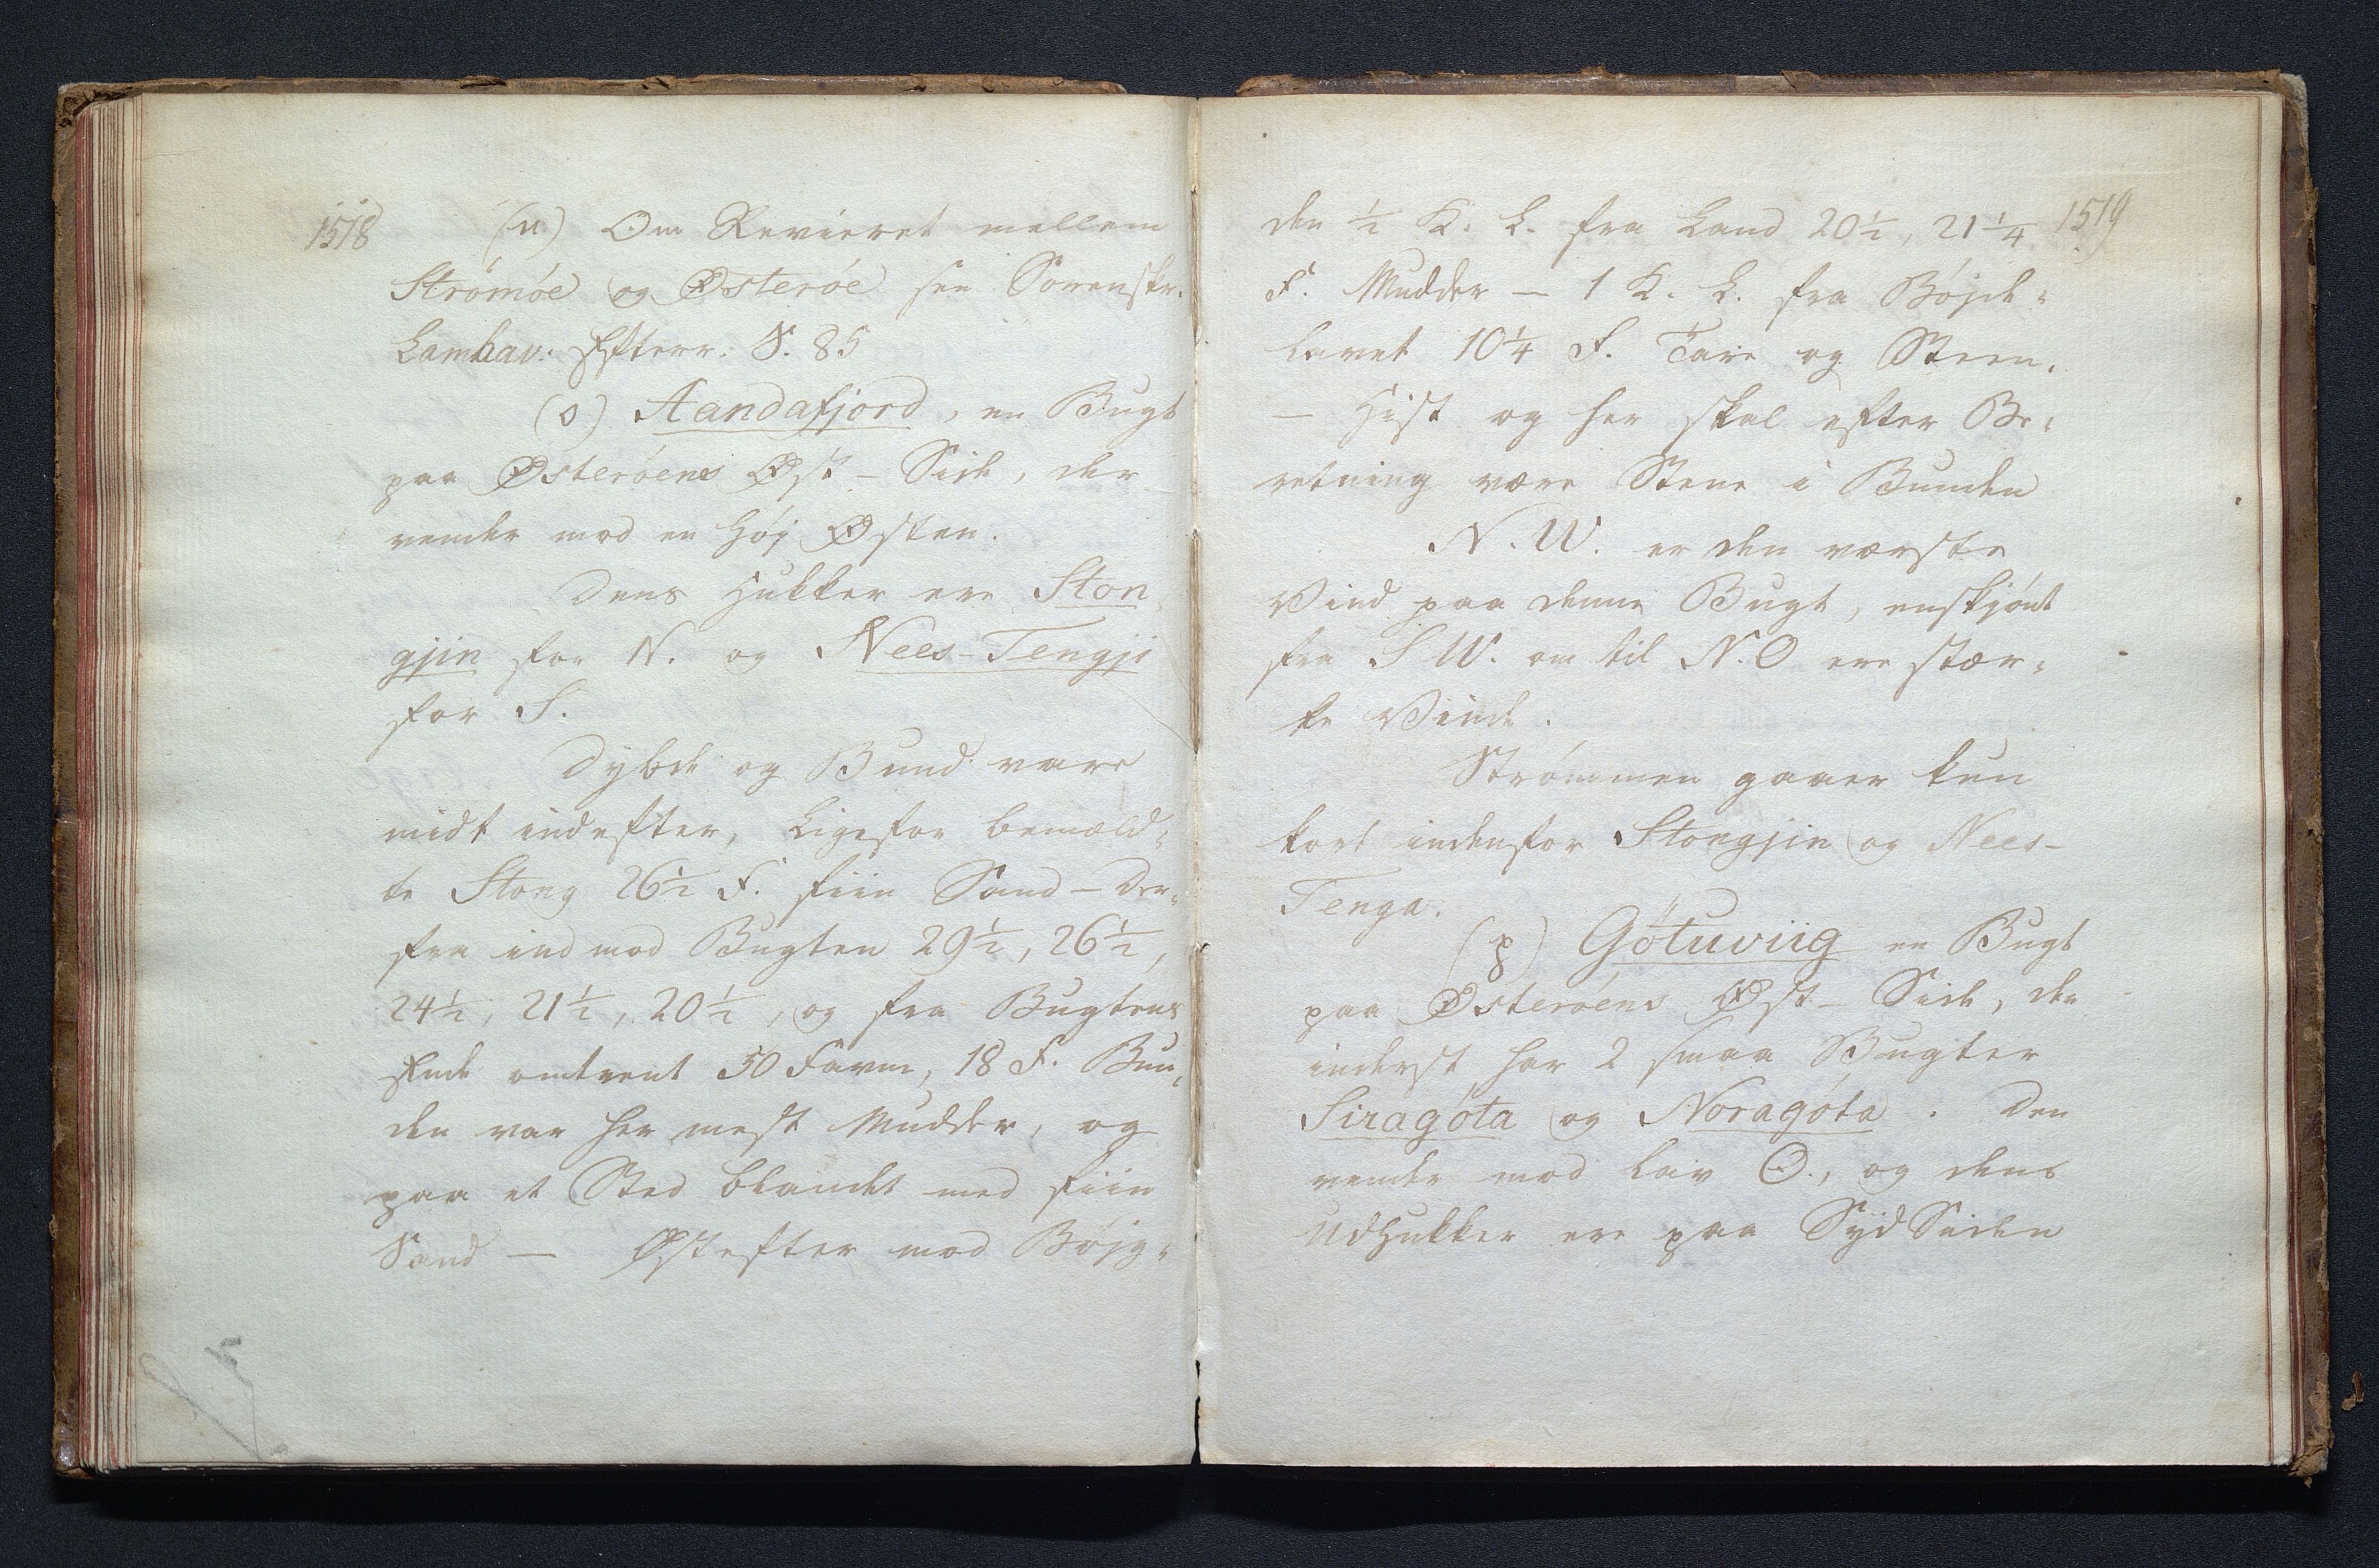 1518
(n) Om Revieret mellem
Strömöe og Österöe see Sorenskr.
Lamhav: Efterr. S. 85
(o) Aandafjord, en Bugt
paa Österöens Øst-Side, der
vender mod en høj Østen.
Dens Hukker ere Ston
gjin for N. og Nees-Tengji
for S.
Dybde og Bund vare
midt indefter, Ligefor bemeld-
te Stong 26½ F. fiin Sand – Der-
fra ind mod Bugten 29½, 26½,
24½, 21½, 20½, og fra Bugtens
Ende omtrent 50 Favne, 18 F. Bun-
den var her mest Mudder, og
paa et Sted blandet med fiin
Sand — Østefter mod Böjg-
1519
den ½ K. L. fra Land 20½, 21¼
F. Mudder — 1 K. L. fra Böjde-
lavet 10¼ F. Tare og Steen.
— Hist og her skal efter Be-
retning være Stene i Bunden
N. W. er den værste
Vind paa denne Bugt, enskjönt
fra S W. om til N. O ere stær-
ke Vinde.
Strömmen gaaer kun
kort indenfor Stongjin og Nees-
Tenga.
(p) Götuviig en Bugt
paa Österöens Øst-Side, der
inderst har 2 smaa Bugter
Siragöta og Noragöta. Den
vender mod lav O., og dens
Udhukker ere paa SydSiden